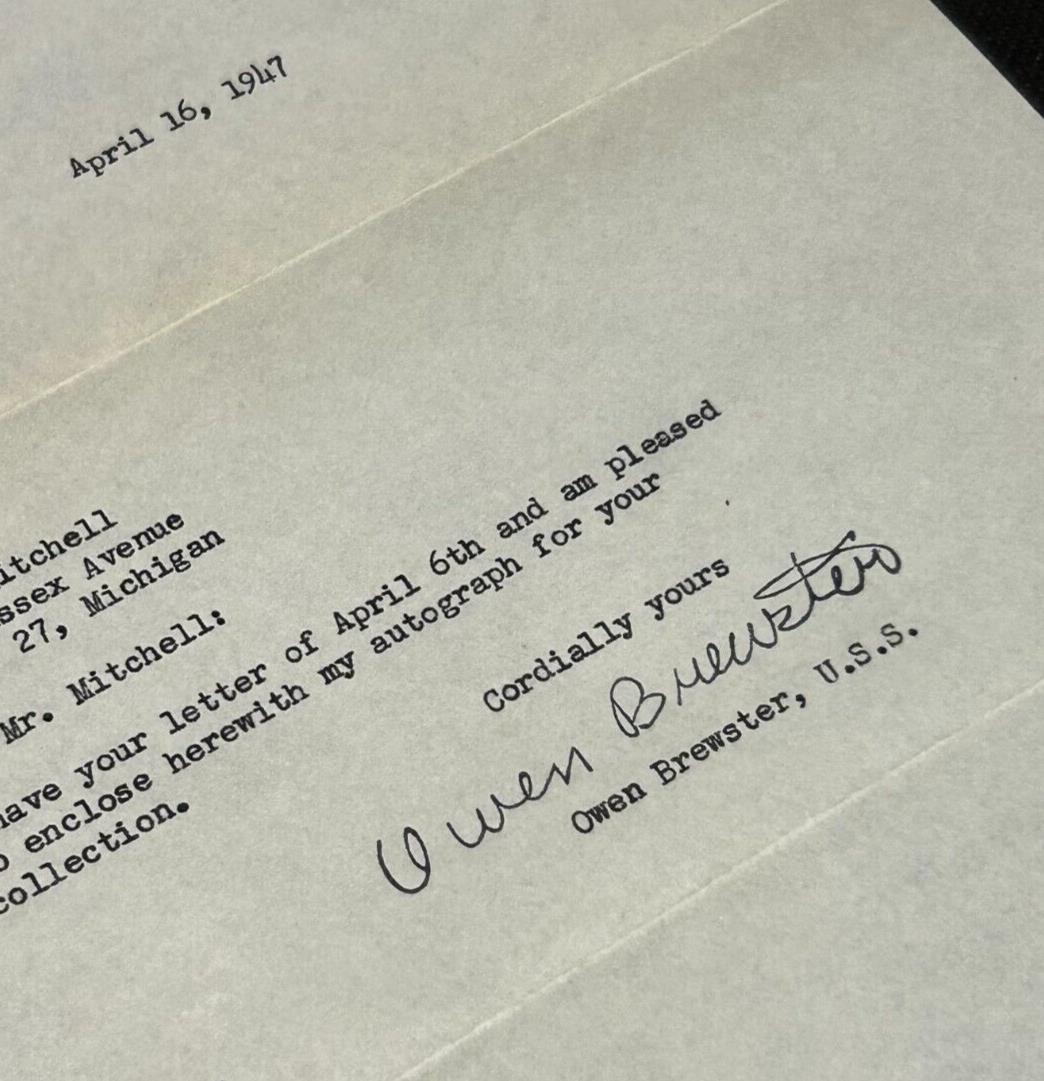 April 16, 1947
itchell
ssex Avenue
27, Michigan
Mr. Mitchell:
have your letter of April 6th and am pleased
o enclose herewith my autograph for your
collection.
Cordially yours
Owen Brewster
Owen Brewster, U.S.S.